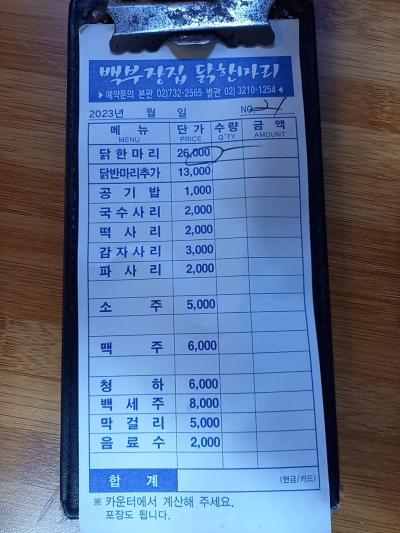 백부장집 닭한마리
▶예약문의 본관 02)732-2565 별관 02) 3210-1254◀
2023년 월 일 NO. 21
메뉴 단가 수량 금액
MENU PRICE Q'TY AMOUNT
닭한마리 26,000
닭반마리추가 13,000
공기밥 1,000
국수사리 2,000
떡사리 2,000
감자사리 3,000
파사리 2,000
소주 5,000
맥주 6,000
청하 6,000
백세주 8,000
막걸리 5,000
음료수 2,000
합계 (현금/카드)
※ 카운터에서 계산해 주세요.
포장도 됩니다.